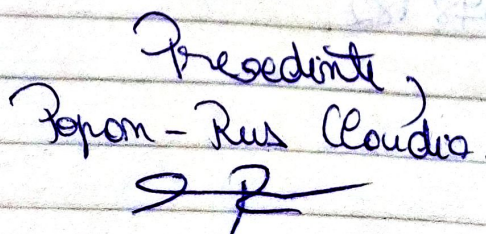 Presedinte,
Popan - Rus Claudia